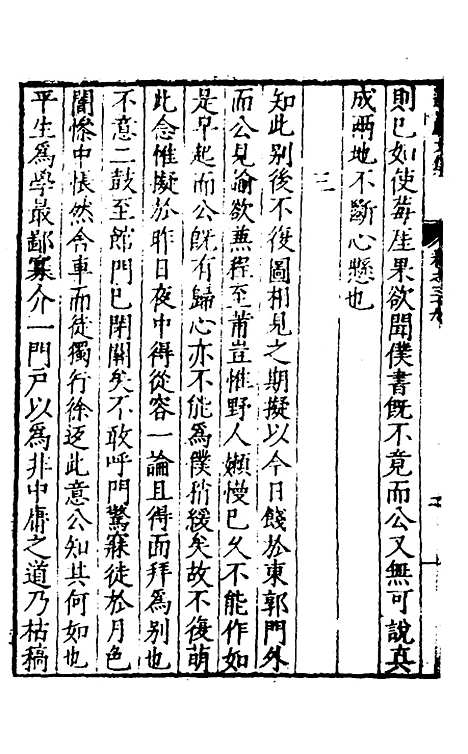 則已如使每生果欲聞僕書既不竟而公又無可說真
成兩地不斷心懸也
三
知此別後不復圖相見之期擬以今日餞於東郭門外
而公見諭欲蒹程至莆豈惟野人嬾慢已久不能作如
是早起而公既有歸心亦不能爲僕稍緩矣故不復萌
此念惟擬於昨日夜中得從容一論且得而拜爲別也
不意二鼓至館門已閉關矣不敢呼門驚寐徒於月色
闇慘中悵然令車而徒獨行徐返此意公知其何如也
平生爲學最鄙寡介一門戶以爲非中庸之道乃枯稿